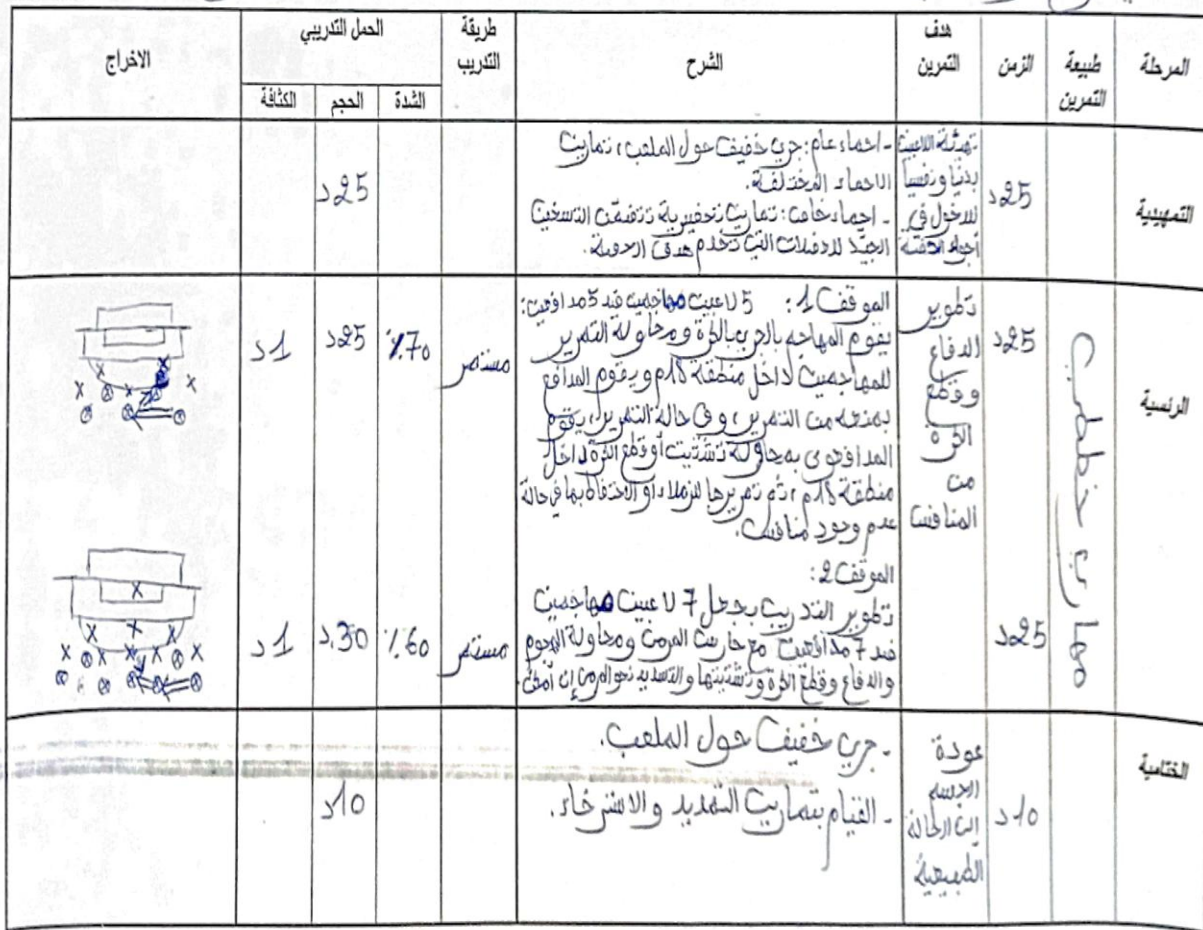 المرحلة
طبيعة التمرين
الزمن
هدف التمرين
الشرح
طريقة التدريب
الحمل التدريبي
الشدة
الحجم
الكثافة
الاخراج
التمهيدية
25د
تهيئة اللاعبين
بدنيا ونفسيا
للدخول في
أجواء الحصة
- احماء عام: جري خفيف حول الملعب، تمارين
الاحماء المختلفة.
- احماء خاص: تمارين تحضيرية تتضمن التسخين
الجيّد للعضلات التي تخدم هدف الحصة.
25د
الرئسية
تمارين خططية
25د
تطوير
الدفاع
وقطع
الكرة
من
المنافس
الموقف 1: 5 لاعبين مهاجمين ضد 5 مدافعين:
يقوم المهاجم بالجري بالكرة ومحاولة التمرير
للمهاجمين داخل منطقة 18م ويقوم المدافع
بمنعه من التمرير، وفي حالة التمرير، يقوم
المدافعون بمحاولة تشتيت أو قطع الكرة داخل
منطقة 18م، ثم تمريرها للزملاء أو الاحتفاظ بها في حالة
عدم وجود منافس.
مستمر
70%
25د
1د
25د
الموقف 2:
تطوير التدريب بجعل 7 لاعبين مهاجمين
ضد 7 مدافعين مع حارس المرمى ومحاولة الهجوم
والدفاع وقطع الكرة وتشتيتها والتسديد نحو المرمى إن أمكن.
مستمر
60%
30د
1د
الختامية
10د
عودة
الجسم
إلى الحالة
الطبيعية
- جري خفيف حول الملعب.
- القيام بتمارين التمديد والاسترخاء.
10د